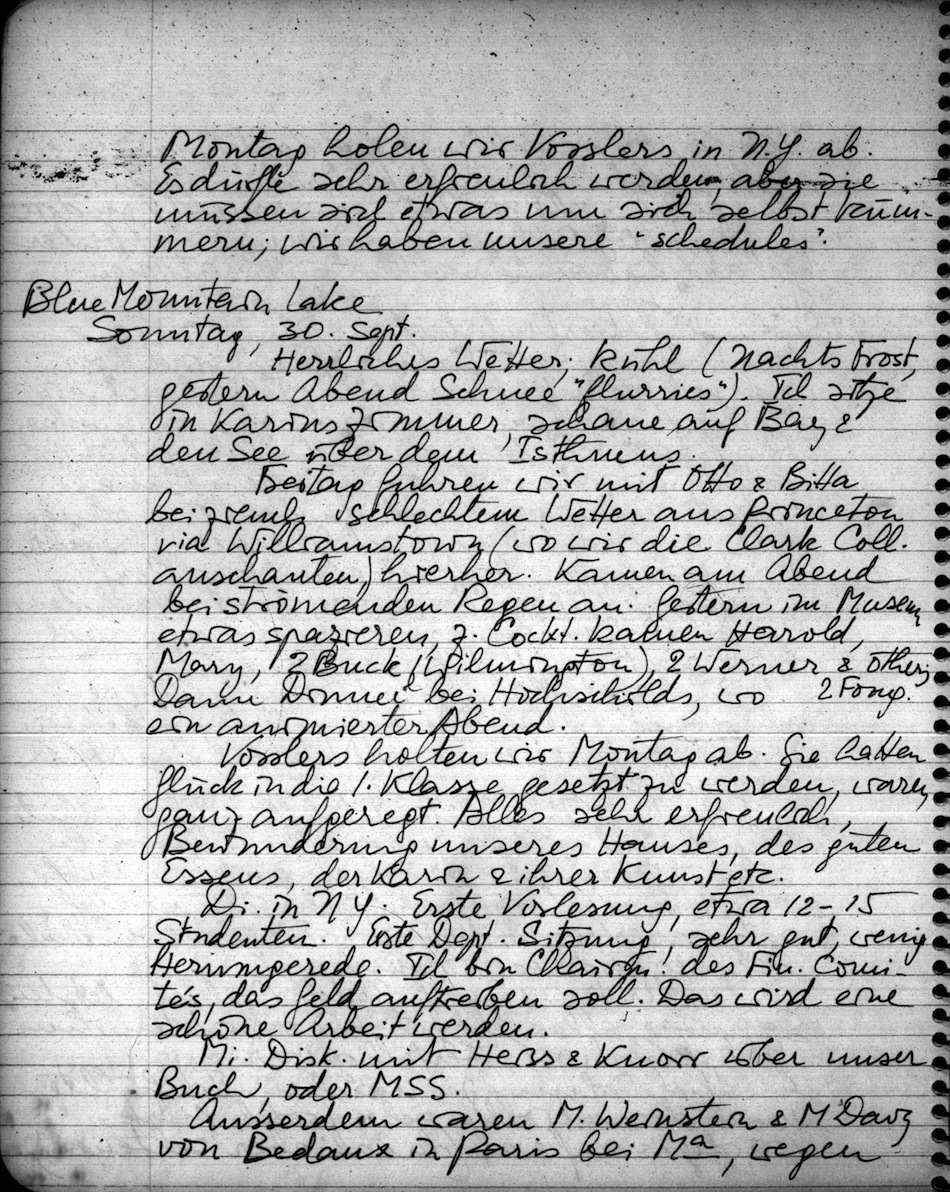 Montag holen wir Vosslers in N.Y. ab.
Es dürfte sehr erfreulich werden, aber sie
müssen sich etwas um sich selbst küm-
mern; wir haben unsere "schedules".
Blue Mountain Lake
Sonntag, 30. Sept.
Herrliches Wetter; kühl (nachts Frost,
gestern Abend Schnee "flurries"). Ich sitze
in Karins Zimmer, schaue auf Bay &
den See über dem Isthmus.
Freitag fuhren wir mit Otto & Bitta
bei zieml. schlechtem Wetter aus Princeton
via Williamstown (wo wir die Clark Coll.
anschauten) hierher. Kamen am Abend
bei strömenden Regen an. Gestern im Museum,
etwas spazieren, z. Cockt. kamen Harold,
Mary, 2 Buck (Wilmington), 2 Werner & other,
Dann Dinner bei Hochschilds, wo 2 Fong.
ein animierter Abend.
Vosslers holten wir Montag ab. Sie hatten
Glück in die 1. Klasse gesetzt zu werden, waren
ganz aufgeregt. Alles sehr erfreulich,
Bewunderung unseres Hauses, des guten
Essens, der Karin & ihrer Kunst etc.
Di. in NY. Erste Vorlesung, etwa 12-15
Studenten. Erste Dept. Sitzung, sehr gut, wenig
Herumgerede. Ich bin Chairm. des Fin. Comi-
tés, das Geld auftreiben soll. Das wird eine
schöne Arbeit werden.
Mi. Disk. mit Herss & Knorr über unser
Buch, oder MSS.
Ausserdem waren M. Weinstein & M Davy
von Bedaux in Paris bei Ma, wegen